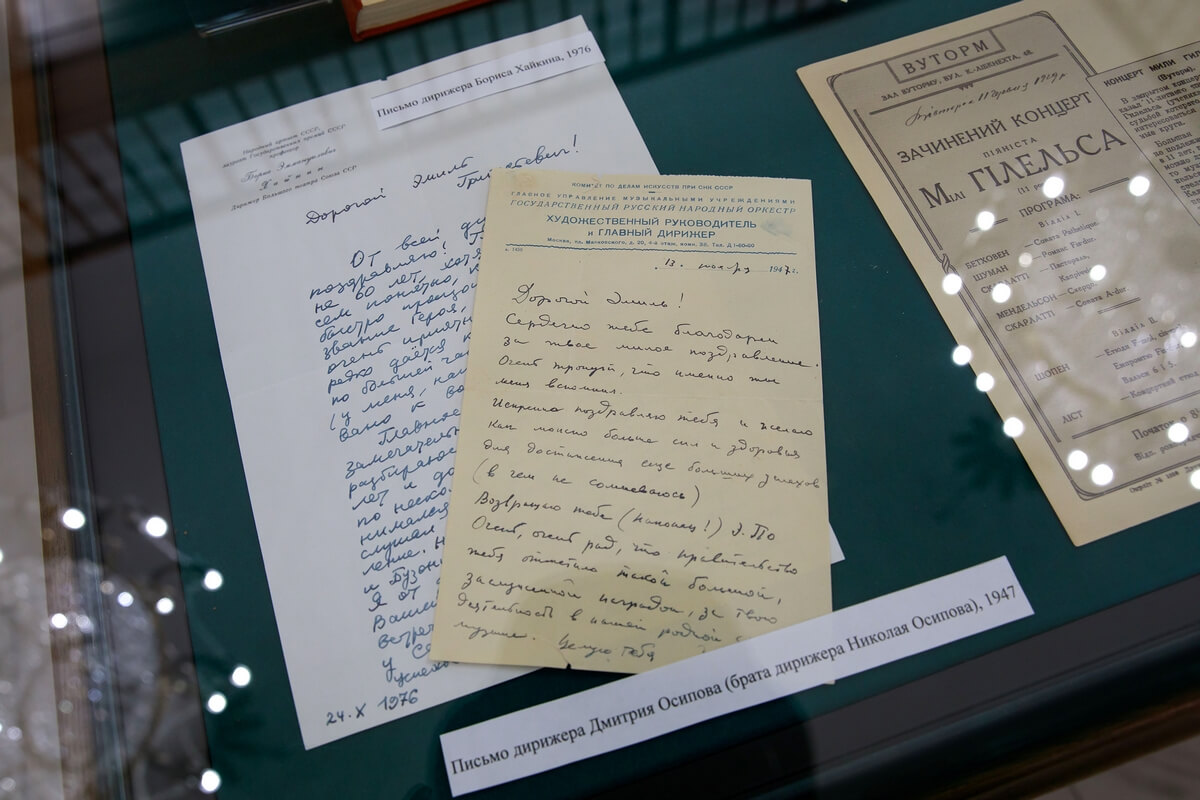 Письмо дирижера Бориса Хайкина, 1976
Народный артист СССР,
лауреат Государственных премий СССР
профессор
Борис Эммануилович
Хайкин
Дирижер Большого театра Союза ССР
Дорогой Эмиль
Григорьевич!
От всей ду
поздравляю!
не 60 лет, хотя
сем понятно, к
быстро
звание Героя,
очень приятн
редко даётся к
по большей ча
(у меня, нап
вано к во
Главное
замечательн
разбирае
лет и до
по неско
нимался
слушал
ление. Н
и Бузон
Я от
Вашем
встреч
у
Успехов
24.X 1976
КОМИТЕТ ПО ДЕЛАМ ИСКУССТВ ПРИ СНК СССР
ГЛАВНОЕ УПРАВЛЕНИЕ МУЗЫКАЛЬНЫМИ УЧРЕЖДЕНИЯМИ
ГОСУДАРСТВЕННЫЙ РУССКИЙ НАРОДНЫЙ ОРКЕСТР
ХУДОЖЕСТВЕННЫЙ РУКОВОДИТЕЛЬ
и ГЛАВНЫЙ ДИРИЖЕР
Москва, пл. Маяковского, д. 20, 4-й этаж, комн. 38. Тел. Д 1-60-00
13 ноября 1947г.
Дорогой Эмиль!
Сердечно тебя благодарим
за твое милое поздравление.
Очень тронут, что именно ты
меня вспомнил.
Искренно поздравляю тебя и желаю
как можно больше сил и здоровья
для достижения еще больших успехов
(в чем не сомневаюсь)
Возвращаю тебе (наконец!) Э. По
Очень, очень рад, что правительство
тебя отметило такой большой,
заслуженной наградой, за твою
деятельность в нашей родной
музыке. Целую тебя
Письмо дирижера Дмитрия Осипова (брата дирижера Николая Осипова), 1947
ВУТОРМ
ЗАЛ ВУТОРМУ, ВУЛ. К. ЛІБКНЕХТА, 48
ЗАЧИНЕНИЙ КОНЦЕРТ
ПІЯНІСТА
Милі ГІЛЕЛЬСА
(11 ро
ПРОГРАМА:
Відділ I.
БЕТХОВЕН — Соната Pathetique.
ШУМАН — Романс Fis-dur.
СКАРЛАТТІ — Пастораль,
Капріч
МЕНДЕЛЬСОН — Скерцо.
СКАРЛАТТІ — Соната A-dur.
Відділ II.
— Етюди F-moll,
ШОПЕН
Вальси 6 і 5.
ЛІСТ — Концертний етюд
Початок о 8
КОНЦЕРТ МИЛИ ГИЛ
(Вуторм).